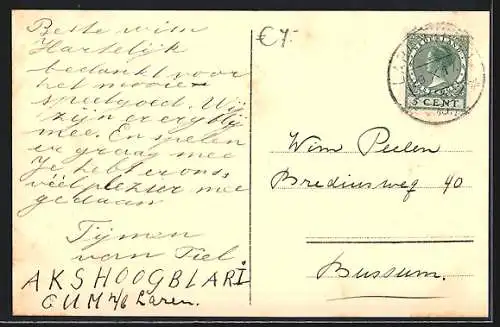 Beste Wim
Hartelijk
bedankt voor
het mooie
speelgoed. Wij
zijn er erg blij
mee. En spelen
er graag mee
Je hebt er ons
véél plezier mee
gedaan
Tijmen
van Tiel
AKSHOOGBLARI
CUM n/b Laren.
€7-
5 CENT
Wim Peelen
Brediusweg 40
Bussum.